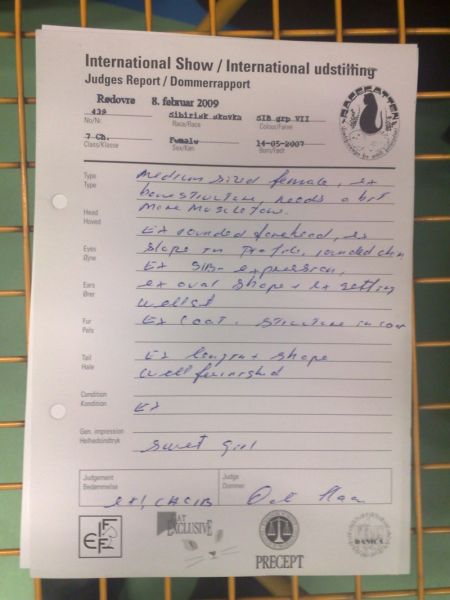 International Show / International udstilling
Judges Report / Dommerrapport
Rødovre 8. februar 2009
439 Sibirisk skovka SIB grp VII
No/Nr. Race/Race Colour/Farve
7 Ch. Female 14-05-2007
Class/Klasse Sex/Køn Born/Født
Type
Type
Medium sized female, ex
bonestructure, needs a bit
more muscletone.
Head
Hoved
Ex rounded forehead, ex
slope in profile, rounded chin
Eyes
Øjne
Ex expression,
Ears
Ører
ex oval shape + ex setting
Fur
Pels
Ex coat. structure
Tail
Hale
Ex length + shape
well furnished
Condition
Kondition
Ex
Gen. impression
Helhedsindtryk
Sweet girl
Judgement
Bedømmelse
Judge
Dommer
ex 1, CACIB
FIFe
CAT
EXCLUSIVE
PRECEPT
DANICA